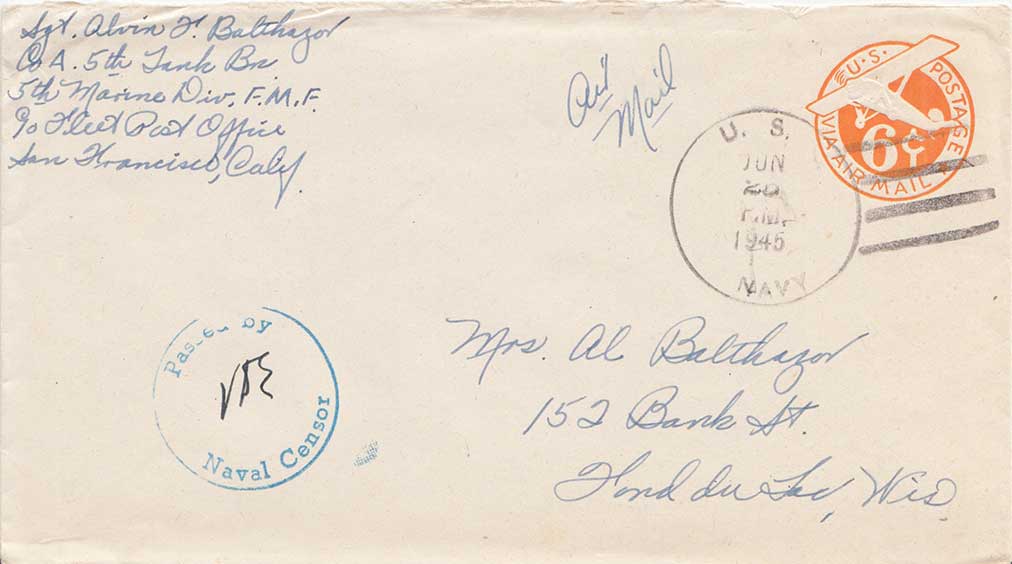 Sgt. Alvin F. Balthazor
Co A. 5th Tank Bn
5th Marine Div, F.M.F.
c/o Fleet Post Office
San Francisco, Calif
Air
Mail
U.S. POSTAGE
6¢
VIA AIR MAIL
U. S.
JUN
20
P.M.
1945
NAVY
Mrs. Al Balthazor
152 Bank St.
Fond du Lac, Wis.
Passed by
Naval Censor